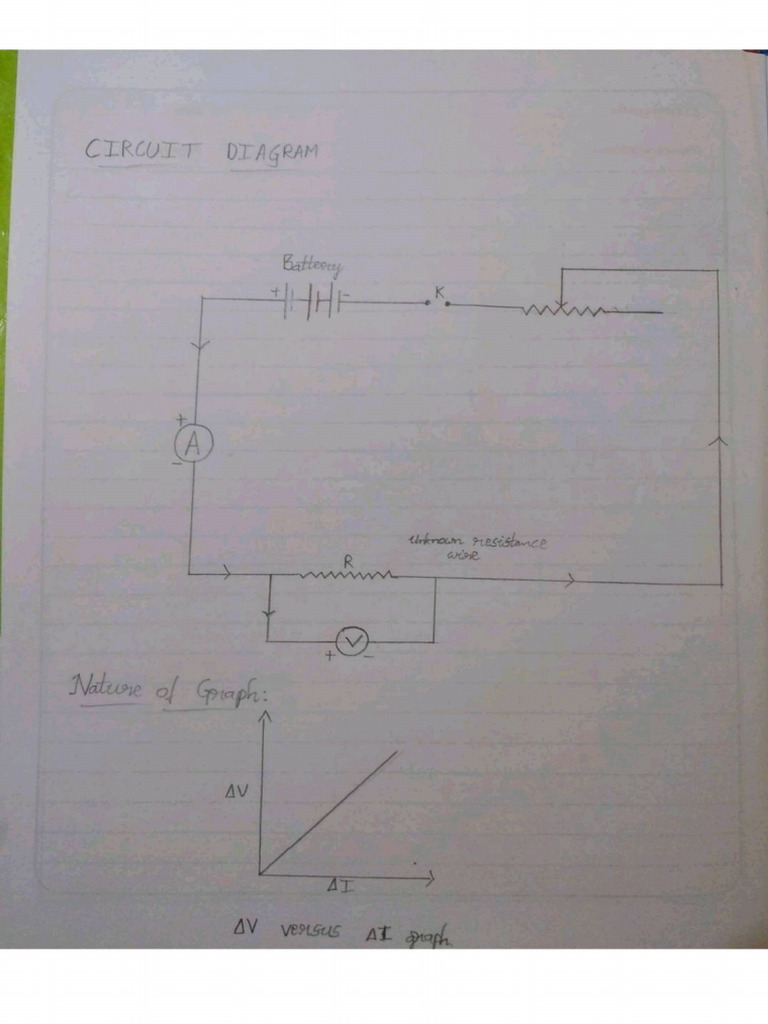 CIRCUIT DIAGRAM
Battery
+ -
K
+
A
-
Unknown resistance
wire
R
V
+ -
Nature of Graph:
ΔV
ΔI
ΔV versus ΔI graph